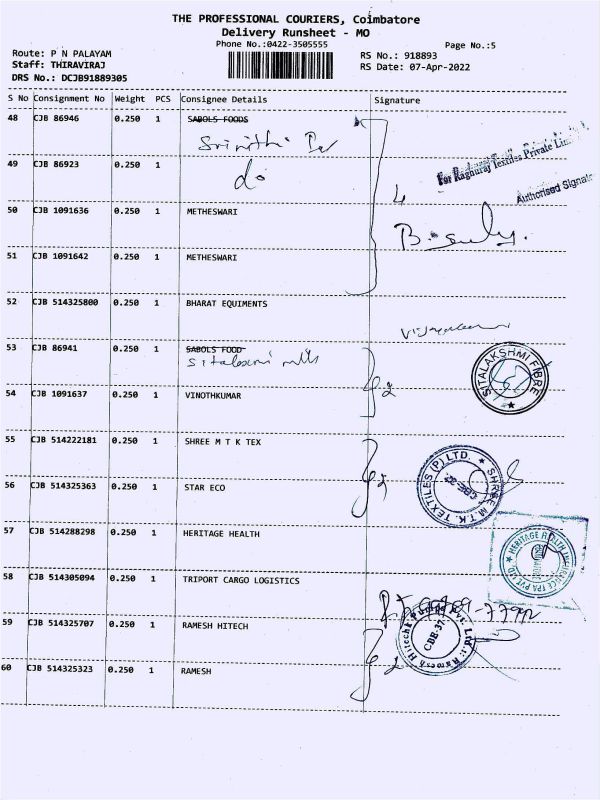 THE PROFESSIONAL COURIERS, Coimbatore
Delivery Runsheet - MO
Phone No.:0422-3505555
Page No.:5
Route: P N PALAYAM
Staff: THIRAVIRAJ
DRS No.: DCJB91889305
RS No.: 918893
RS Date: 07-Apr-2022
S No Consignment No Weight PCS Consignee Details Signature
48 CJB 86946 0.250 1 SABOLS FOODS
Srinithi
For Raghuraj Textiles Private Limited
49 CJB 86923 0.250 1
do
Authorised Signat
50 CJB 1091636 0.250 1 METHESWARI
4
51 CJB 1091642 0.250 1 METHESWARI
52 CJB 514325800 0.250 1 BHARAT EQUIMENTS
53 CJB 86941 0.250 1 SABOLS FOOD
Sitalaxmi mills
SITALAKSHMI FIBRE
54 CJB 1091637 0.250 1 VINOTHKUMAR
2
55 CJB 514222181 0.250 1 SHREE M T K TEX
SHREE M.T.K. TEXTILES (P) LTD.
56 CJB 514325363 0.250 1 STAR ECO
2
57 CJB 514288298 0.250 1 HERITAGE HEALTH
HERITAGE HEALTH INSURANCE TPA PVT LTD
58 CJB 514305094 0.250 1 TRIPORT CARGO LOGISTICS
59 CJB 514325707 0.250 1 RAMESH HITECH
Ramesh Hitech Pvt. Ltd.
CBE-37
60 CJB 514325323 0.250 1 RAMESH
2